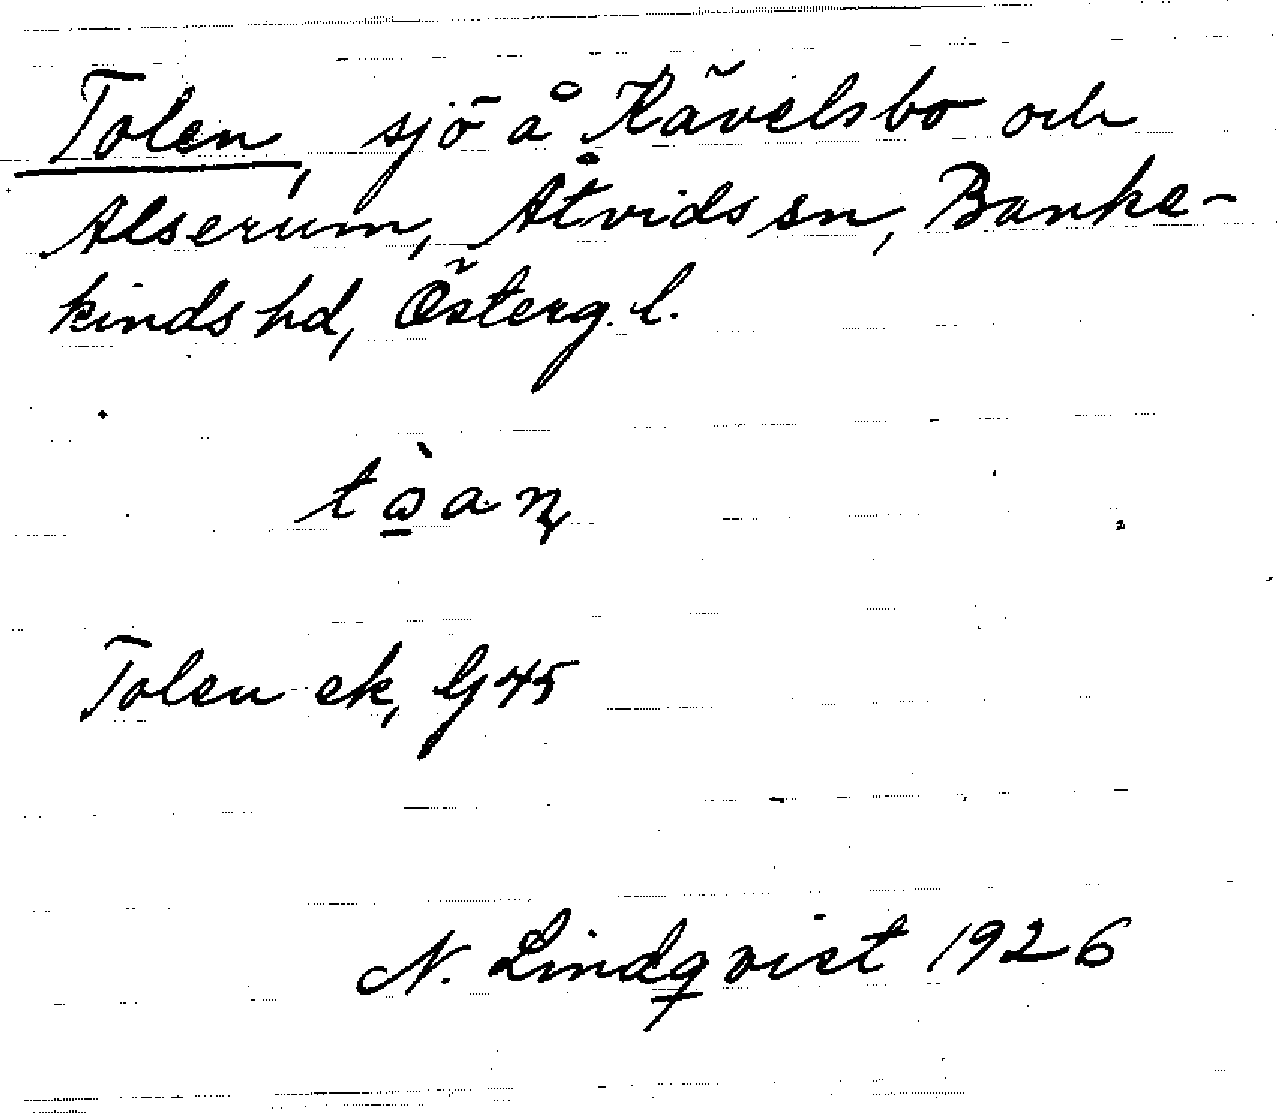 Tolen, sjö å Kävelsbo och
Alserum, Åtvids sn, Banke-
kinds hd, Österg. l.
Tolen ek, G 45
N. Lindqvist 1926